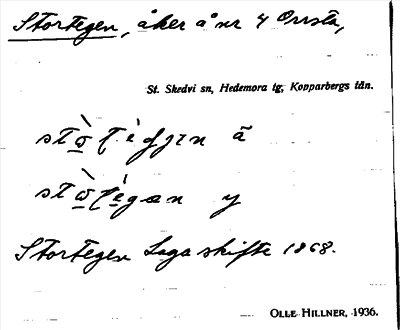 Stortegen, åker å nr 4 Orrsta,
St. Skedvi sn, Hedemora tg, Kopparbergs län.
ä
y
Stortegen Laga skifte 1868.
OLLE HILLNER, 1936.